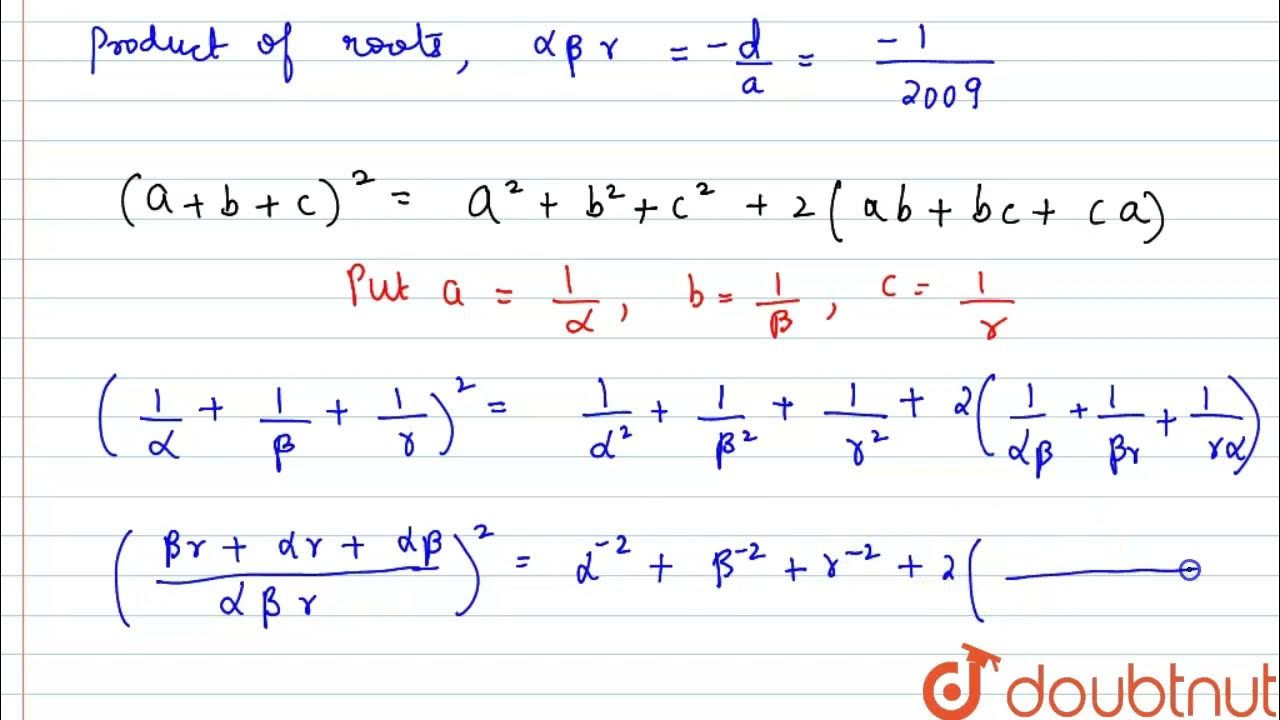 Product of roots, αβγ = -d/a = -1/2009
(a + b + c)² = a² + b² + c² + 2(ab + bc + ca)
Put a = 1/α, b = 1/β, c = 1/γ
(1/α + 1/β + 1/γ)² = 1/α² + 1/β² + 1/γ² + 2(1/αβ + 1/βγ + 1/γα)
((βγ + αγ + αβ)/αβγ)² = α⁻² + β⁻² + γ⁻² + 2(
doubtnut